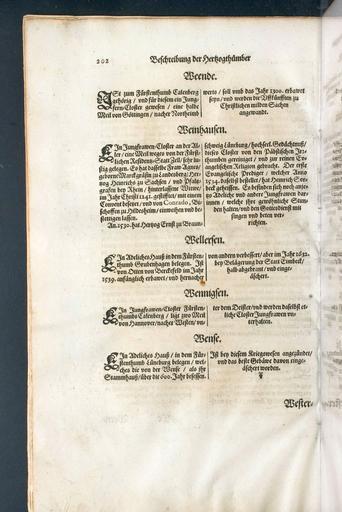 202
Beschreibung der Hertzogthümber
Weende.
ISt zum Fürstenthumb Calenberg
gehörig / und für diesem ein Jung-
frawen-Closter gewesen / eine halbe
Meil von Göttingen / nacher Northeimb
werts / soll umb das Jahr 1300. erbawet
seyn / und werden die Uffkünfften zu
Christlichen milden Sachen
angewandt.
Weinhausen.
EIn Jungfrawen-Closter an der Al-
ler / eine Meil weges von der Fürst-
lichen Residentz-Statt Zell / sehr lu-
stig gelegen. Es hat dasselbe Fraw Agnes /
geborne Marckgräfin zu Landesberg / Her-
zog Henrichs zu Sachsen / und Pfaltz-
grafen bey Rhein / hinterlassene Witwe /
im Jahr Christi 1241. gestifftet / mit einem
Convent besetzet / und von Conrado, Bi-
schoffen zu Hildesheim / einweihen und be-
stettigen lassen.
An. 1530. hat Hertzog Ernst zu Braun-
schweig Lüneburg / hochsel. Gedächtnuß /
dieses Closter von den Päbstischen Irr-
thumben gereiniget / und zur reinen Ev-
angelischen Religion gebracht. Der erste
Evangelische Prediger / welcher Anno
1534. daselbst bestellet / hat Heinrich
geheissen. Es befinden sich noch anje-
zo Adeliche und andere Jungfrawen dar-
innen / welche ihre gewöhnliche Stun-
den halten / und den Gottesdienst mit
singen und beten ver-
richten.
Wellersen.
EIn Adeliches Hauß in dem Fürsten-
thumb Grubenhagen belegen. Ist
von Otten von Berckfeld im Jahr
1539. anfänglich erbawet / und hernacher
von andern verbessert / aber im Jahr 1632.
bey Belägerung der Statt Eimbeck /
halb abgebrant / und einge-
äschert.
Wennigsen.
EIn Jungfrawen-Closter Fürsten-
thumbs Calenberg / ligt zwo Meil
von Hannover / nacher Westen / un-
ter dem Deister / und werden daselbst et-
liche Closter Jungfrawen un-
terhalten.
Wense.
EIn Adeliches Hauß / in dem Für-
stenthumb Lüneburg belegen / wel-
ches die von der Wense / als ihr
Stammhauß / über die 600. Jahr besessen.
Ist bey diesem Kriegswesen angezündet /
und das beste Gebäwe davon einge-
äschert worden.
Wester-